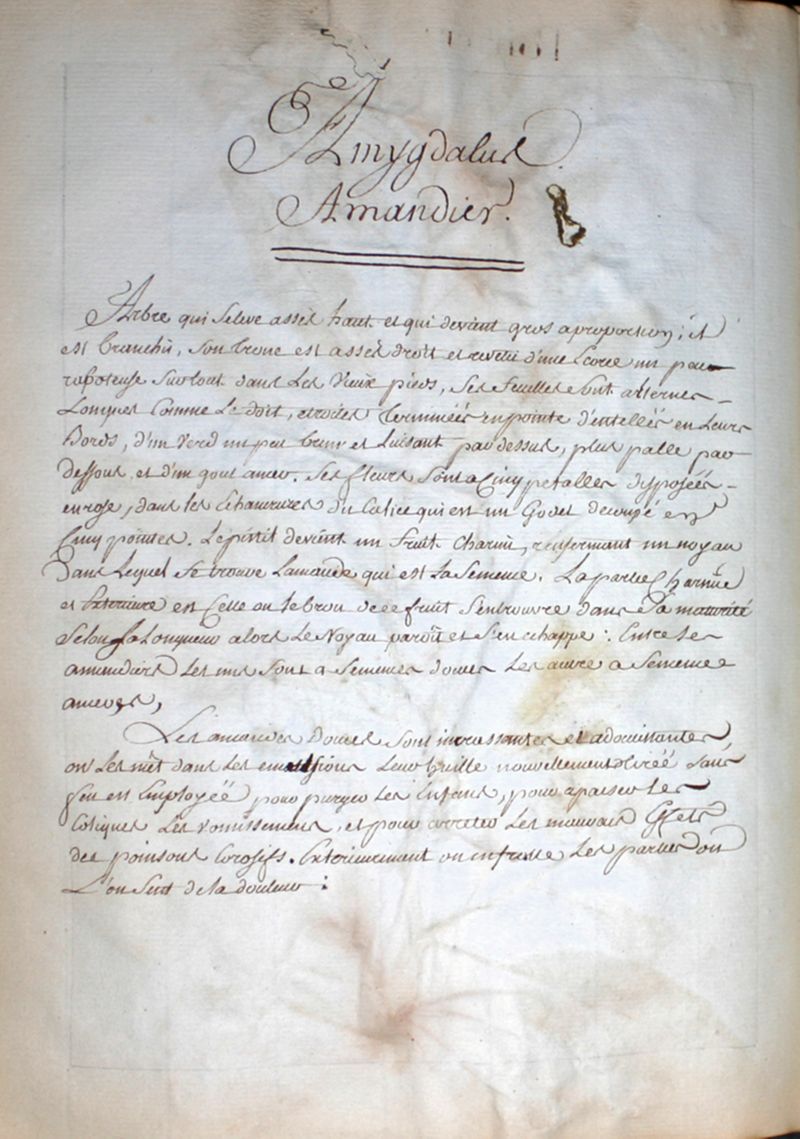 Amygdalus.
Amandier.
Arbre qui seleve assés haut et qui devient gros aproportion; il
est branchu, son tronc est assés droit et revetu d'une Ecorce un peu
raboteuse surtout dans Les Vieux pieds, Ses feuilles sont alternes
Longues Comme Le doit, etroites Terminées enpointe d'entellés en Leurs
Bords, d'un Verd un peu brun et Luisant par dessus, plus palle par
dessous, et d'un gout amer. Ses fleurs sont a Cinq petalles disposées
enrose, dans les Echancrures du Calice qui est un Godet decoupé en
Cinq pointes. Le pistil devient un fruit charnu, renfermant un noyau
Dans Lequel se trouve Lamande qui est La semence. La partie charnüe
et Exterieure est Celle ou Le brou de ce fruit s'entrouvre dans sa maturité
Selon sa Longueur alors Le Noyau paroît et s'en echappe: Entre Les
amendiers Les uns sont a semences douces Les autre a semence
ameres,
Les amandes Douces sont incrassantes et adoucissantes,
on Les mêt dans Les emulsions Leur huille nouvellement tirée sans
feu est Employée pour purger Les Enfans, pour apaiser Les
Coliques Les vomissemens, et pour arreter Les mauvais Effets
des poinsons Corosifs. Exterieurement on en frotte Les parties où
L'on sent de la douleur: